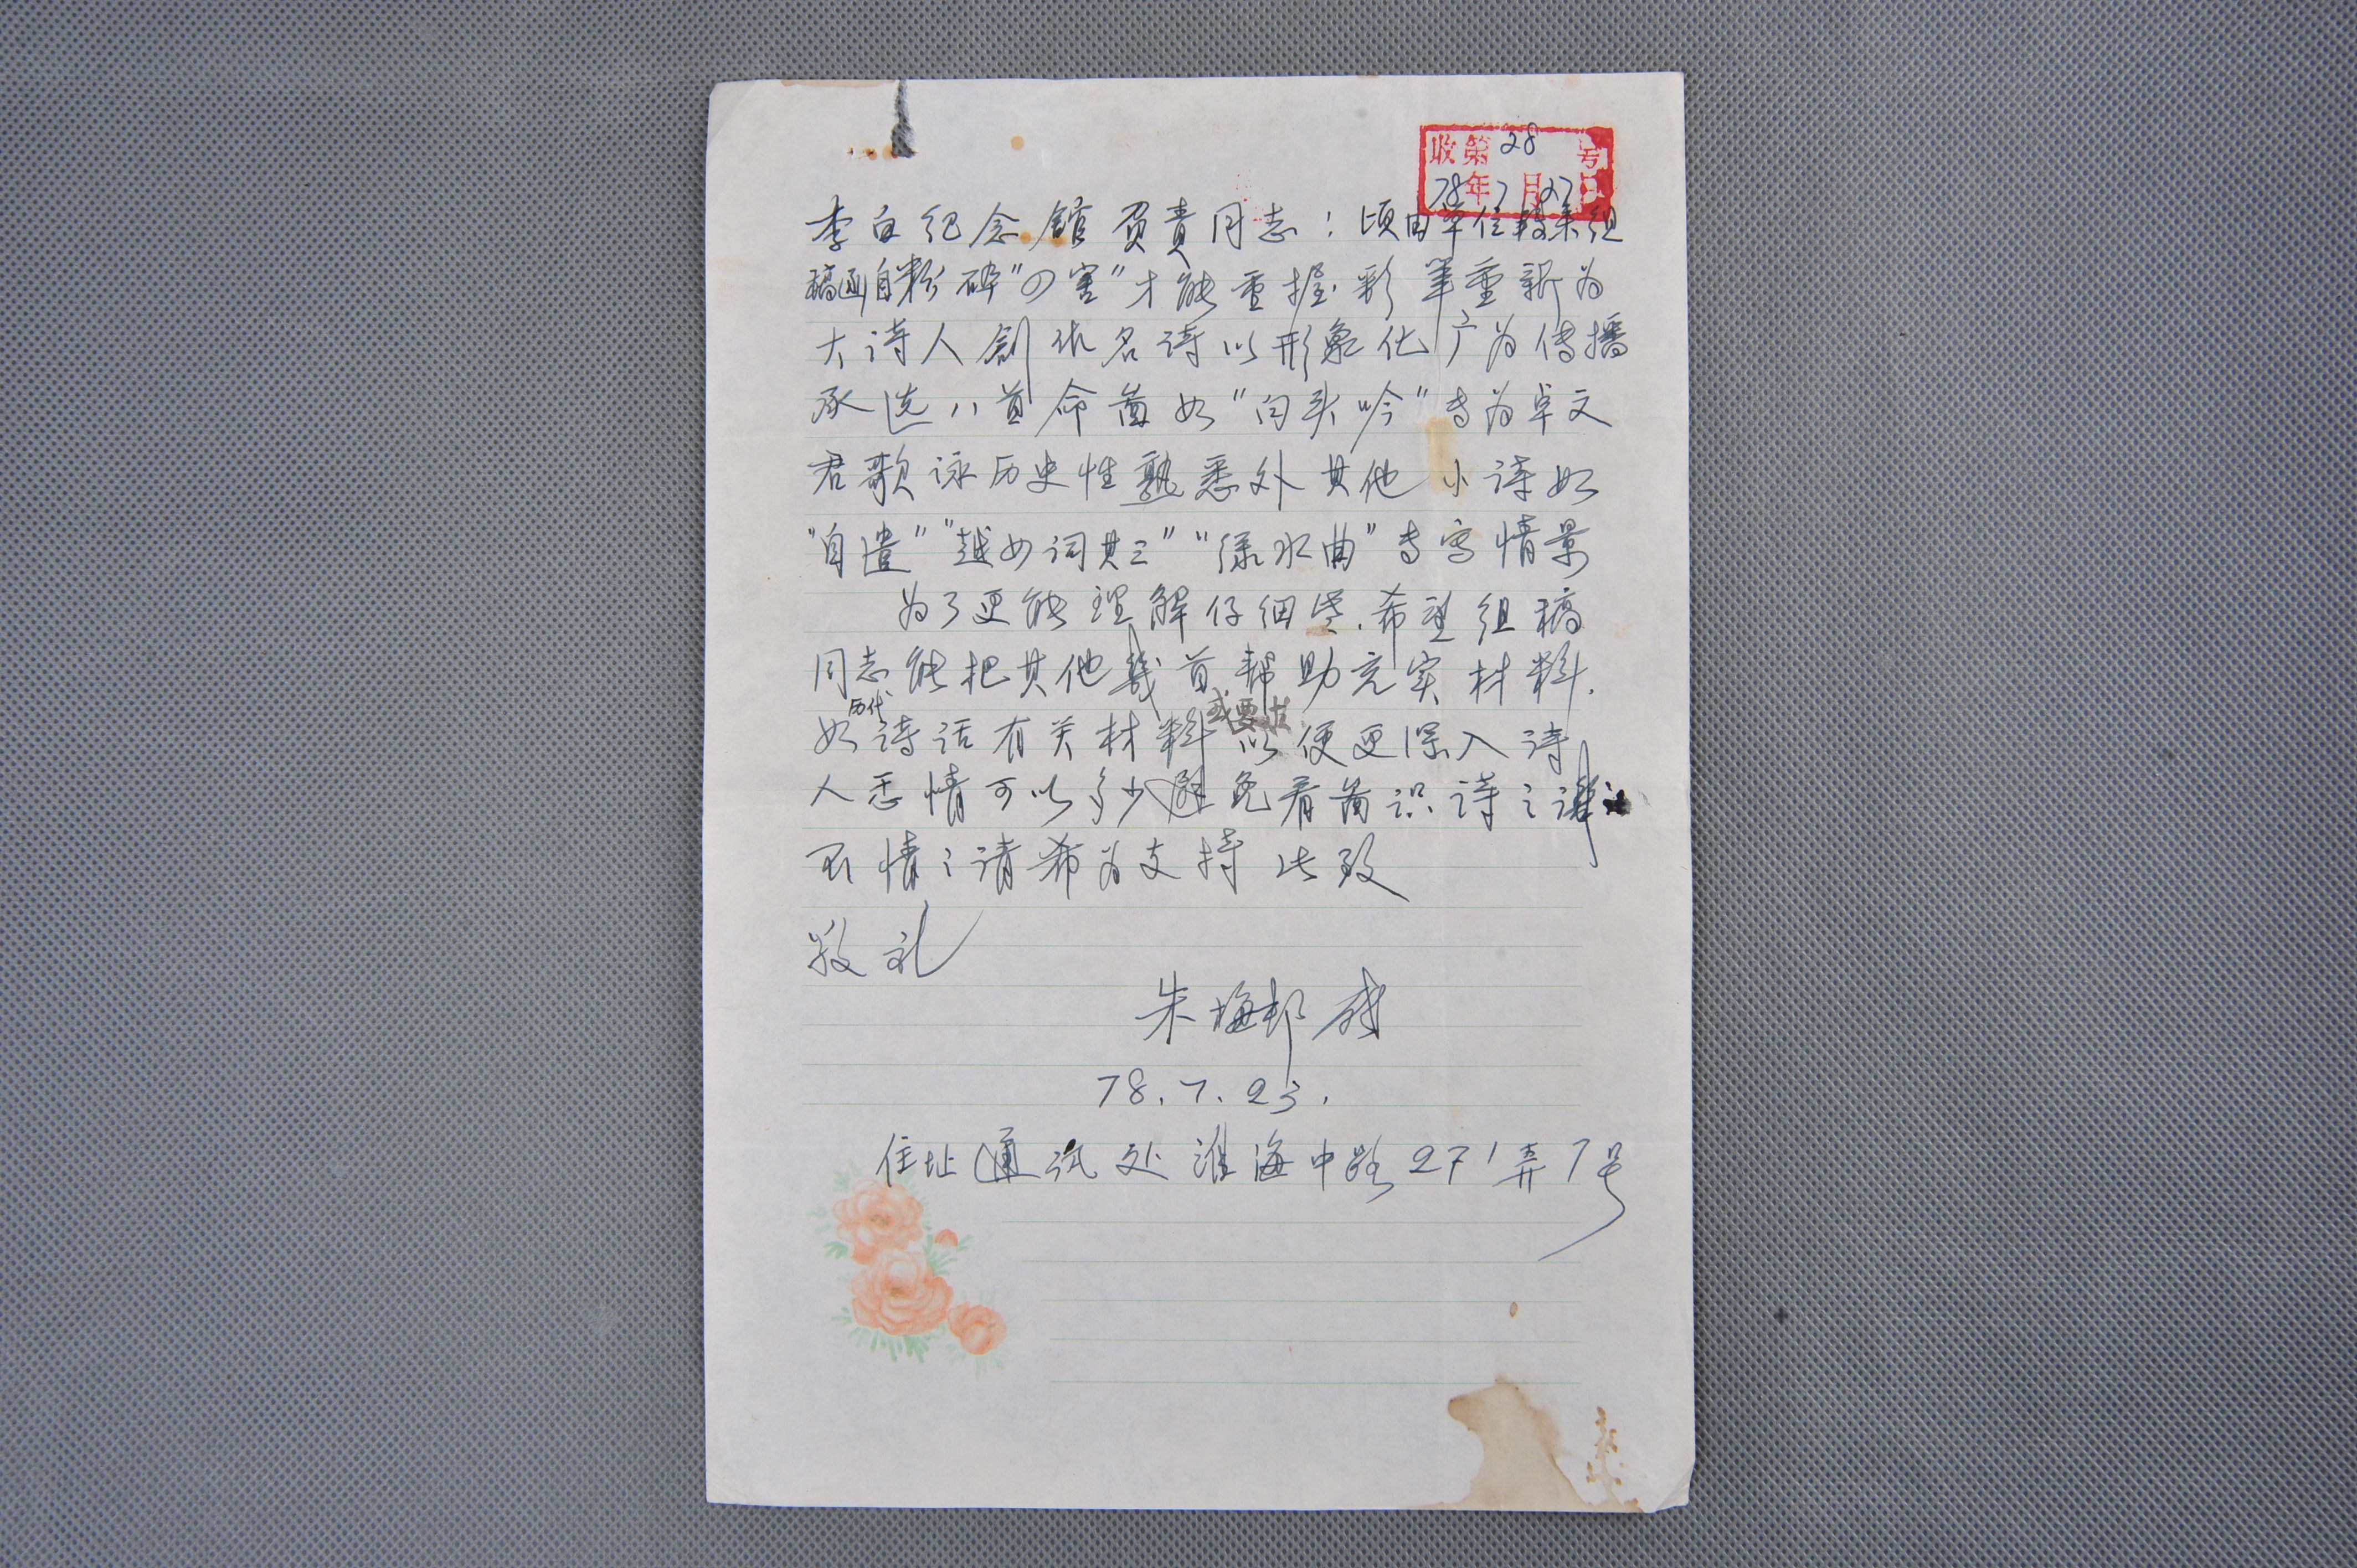 收第28号
78年7月27日
李白纪念馆负责同志：顷由单位转来组
稿函自粉碎"四害"才能重握彩笔重新为
大诗人创作名诗以形象化广为传播
承选八首命画如"白头吟"专为卓文
君歌咏历史性熟悉外其他小诗如
"自遣""越女词其三""绿水曲"专写情景
为了更能理解仔细些.希望组稿
同志能把其他几首帮助充实材料.
如历代诗话有关材料或要求以便更深入诗
人悉情可以多少避免看画识诗之
不情之请希为支持 此致
敬礼
朱梅邨
78.7.23.
住址通讯处淮海中路271弄7号